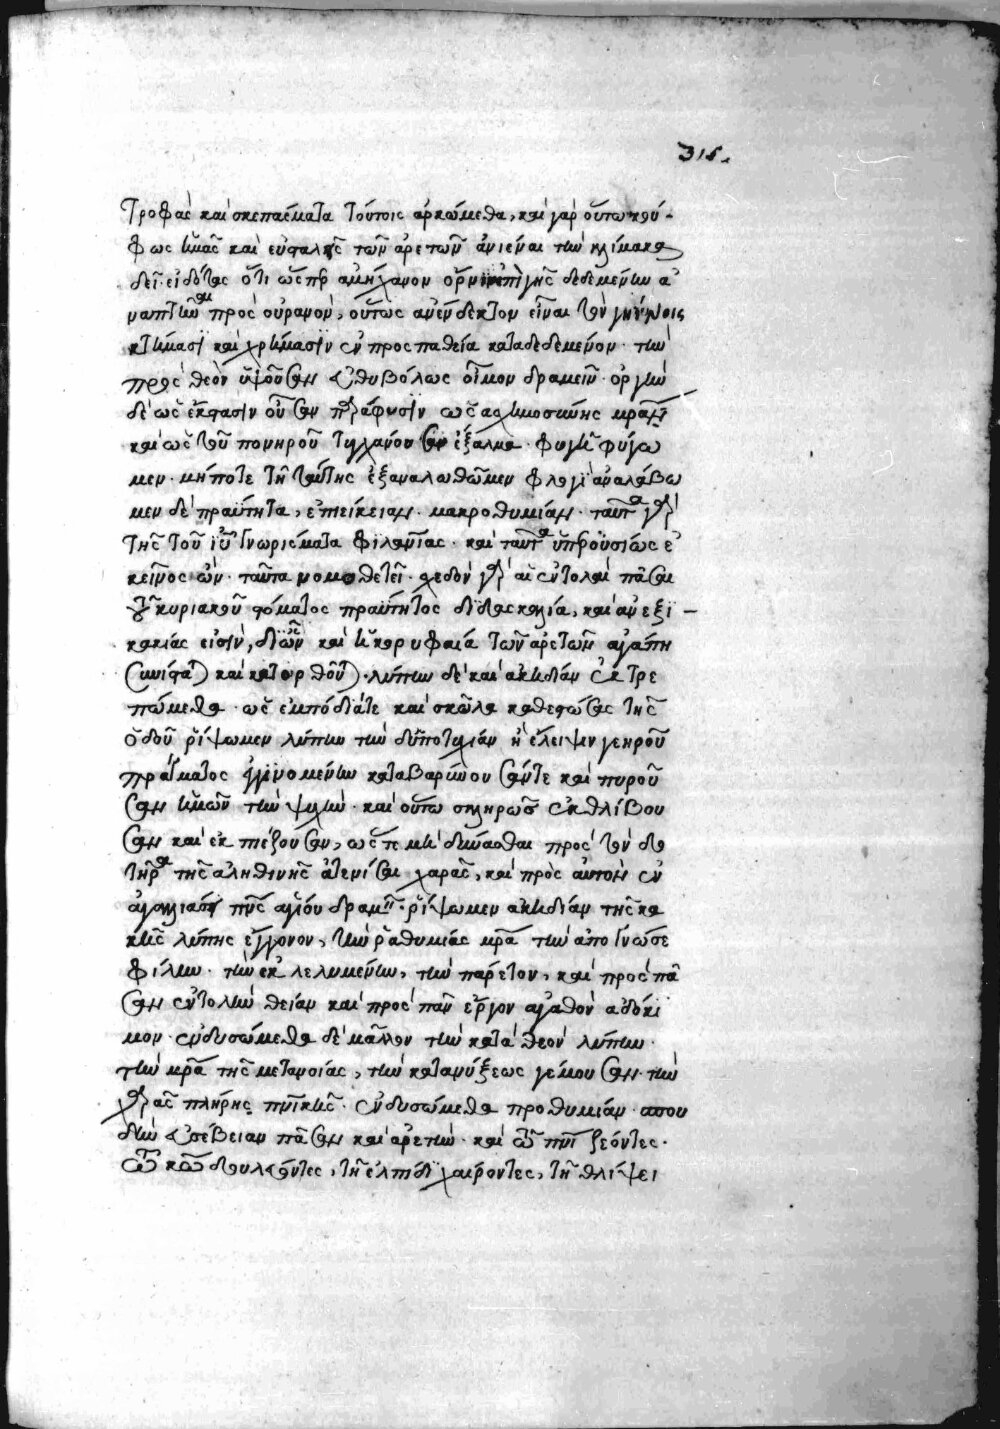 315.
τροφὰς καὶ σκεπάσματα τούτοις ἀρκώμεθα, καὶ γὰρ οὕτω κού-
φως ἡμᾶς καὶ εὐσταλεῖς τῶν ἀρετῶν ἀνιέναι τὴν κλίμακα
δεῖ· εἰδότας ὅτι ὥσπερ ἀμήχανον ὄρνιν ἐπὶ γῆς δεδεμένην ἀ
ναπτῆναι πρὸς οὐρανὸν, οὕτως ἀνένδεκτον εἶναι τὸν γηΐνοις
κτήμασι καὶ χρήμασιν ἐν προσπαθεία καταδεδεμένον· τὴν
πρὸς θεὸν ὑψοῦσαν εὐθυβόλως οἶμον δραμεῖν· ὀργὴν
δὲ ὡς ἔκστασιν οὖσαν παρὰ φύσιν ὡς ἀσχημοσύνης μητέρα
καὶ ὡς τοῦ πονηροῦ τυγχάνουσαν φυγῇ φύγω
μεν· μήποτε τῇ ταύτης ἐξαναλωθῶμεν φλογί· ἀναλάβω
μεν δὲ πραΰτητα, ἐπιείκειαν· μακροθυμίαν· ταῦτα γὰρ
τῆς τοῦ ἰῦ γνωρίσματα φιλανίας· καὶ ταῦτα ὑπερουσίως ἐ
κεῖνος ὢν· ταῦτα νομοθετεῖ· σχεδὸν γὰρ αἱ ἐντολαὶ πᾶσαι
τοῦ κυριακοῦ στόματος πραΰτητος διδασκαλία, καὶ ἀνεξι-
κακίας εἰσὶν, δι' ὧν καὶ ἡ κορυφαία τῶν ἀρετῶν ἀγάπη
συνίσταται καὶ κατορθοῦται· λύπην δὲ καὶ ἀκηδίαν ἐκτρε
πώμεθα· ὡς ἐμπόδιά τε καὶ σκῶλα καθεστῶσας τῆς
ὁδοῦ ῥίψωμεν λύπην τὴν δι' ἀποτυχίαν ἢ ἔλειψιν γεηροῦ
πράγματος ἐγγινομένην καταβαρύνουσάν τε καὶ πυροῦ
σαν ἡμῶν τὴν ψυχὴν· καὶ οὕτω σκληρῶς ἐκθλίβου
σαν καὶ ἐκπιέζουσαν, ὥς τε μὴ δύνασθαι πρὸς τὸν δο
τῆρα τῆς ἀληθινῆς ἀτενίσαι χαρᾶς, καὶ πρὸς αὐτὸν ἐν
ἀγαλλιάσει πνς ἁγίου δραμεῖν· ῥίψωμεν ἀκηδίαν τῆς κα
κῆς λύπης ἔγγονον, τὴν ῥαθυμίας μρα τὴν ἀπογνώσε
φίλην· τὴν ἐκλελυμένην, τὴν πάρετον, καὶ πρὸς πᾶ
σαν ἐντολὴν θείαν καὶ πρὸς πᾶν ἔργον ἀγαθὸν ἀδόκι
μον· ἐνδυσώμεθα δὲ μᾶλλον τὴν κατὰ θεὸν λύπην·
τὴν μρα τῆς μετανοίας, τὴν κατανύξεως γέμουσαν· τὴν
χαρᾶς πλήρης πνικῆς· ἐνδυσώμεθα προθυμίαν· σπου
δὴν εὐσέβειαν πᾶσαν καὶ ἀρετὴν· καὶ τῷ πνι ζέοντες·
τῷ κῶ δουλεύοντες, τῇ ἐλπίδι χαίροντες, τῇ θλίψει